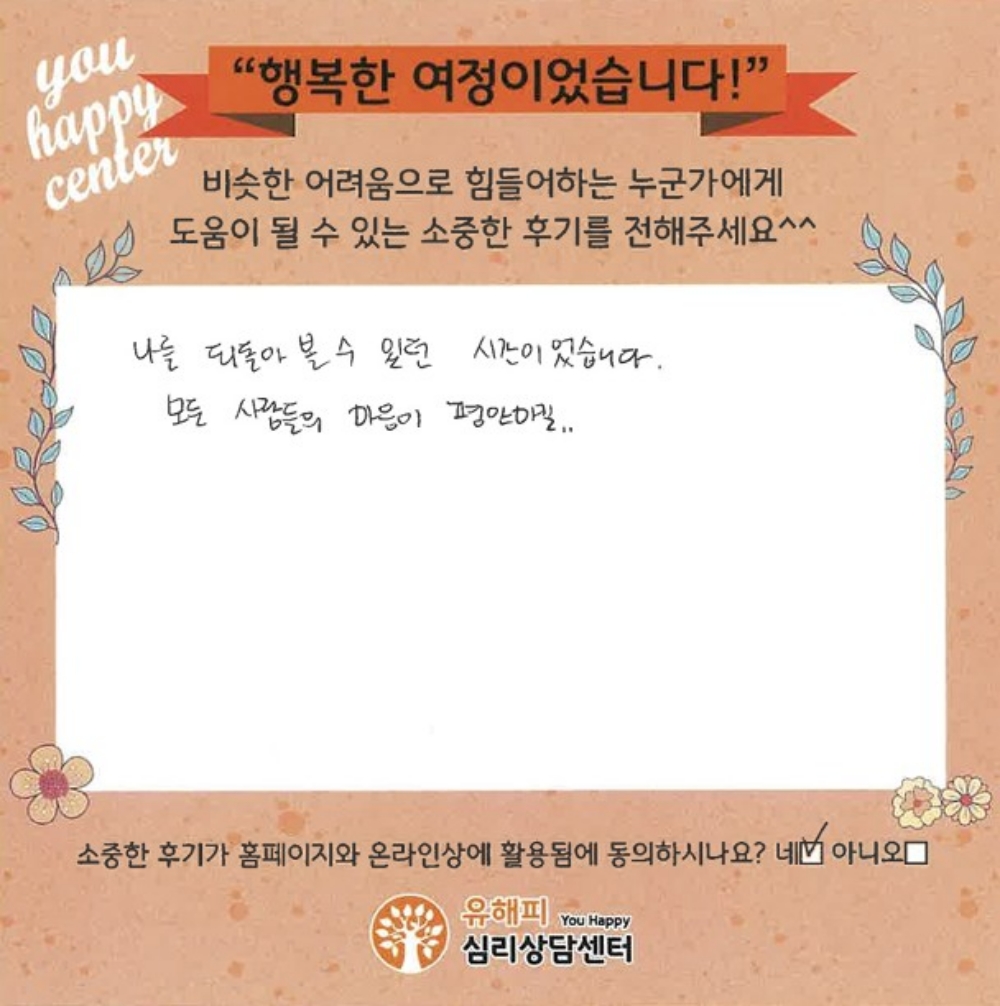 you
happy
center
“행복한 여정이었습니다!”
비슷한 어려움으로 힘들어하는 누군가에게
도움이 될 수 있는 소중한 후기를 전해주세요^^
나를 되돌아 볼 수 있던 시간이었습니다.
모든 사람들의 마음이 평안하길..
소중한 후기가 홈페이지와 온라인상에 활용됨에 동의하시나요? 네☑ 아니오☐
유해피 You Happy
심리상담센터